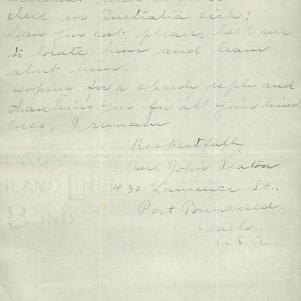 there in Australia sick?
Can you not, please, help me
to locate him and learn
about him.
Hoping for a speedy reply and
thanking you for all your kind
ness, I remain
Respectfully
Mrs. John Seaton
430 Lawrence St.,
Port Townsend,
Wash.
U. S. A.
LAND LINEN
BOND